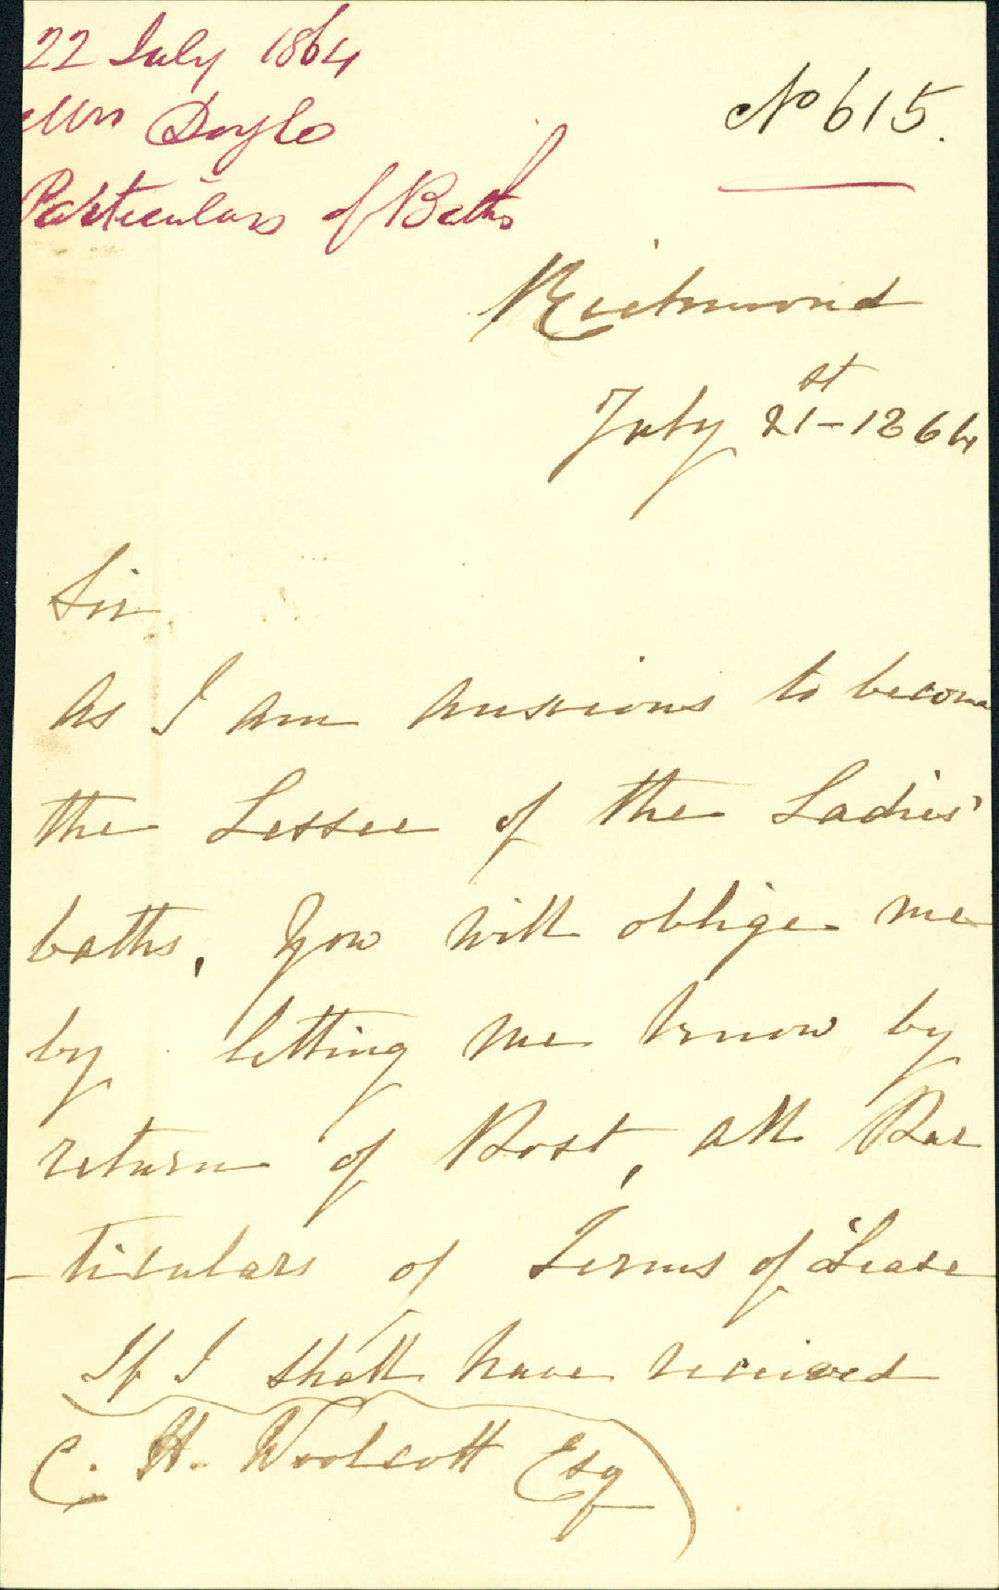 22 July 1864
Mrs Doyle
Particulars of Baths
No 615.
Richmond
July 21st - 1864
Sir
As I am anxious to become
the Lessee of the Ladies'
baths, you will oblige me
by letting me know by
return of Post, all Par
-ticulars of Terms of Lease
If I shall have received
C. H. Woolcott Esq